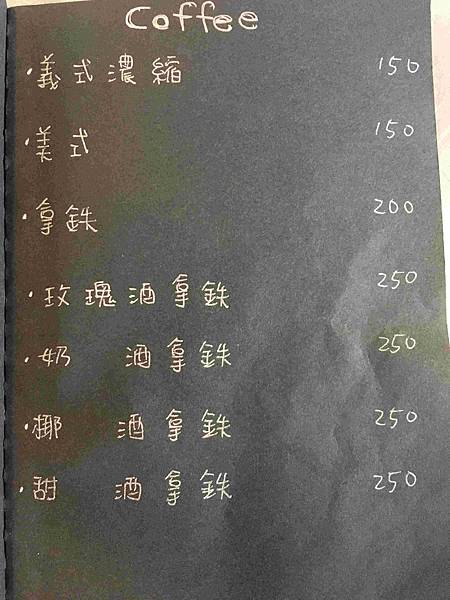 Coffee
·義式濃縮 150
·美式 150
·拿鉄 200
·玫瑰酒拿鉄 250
·奶 酒拿鉄 250
·椰 酒拿鉄 250
·甜 酒拿鉄 250